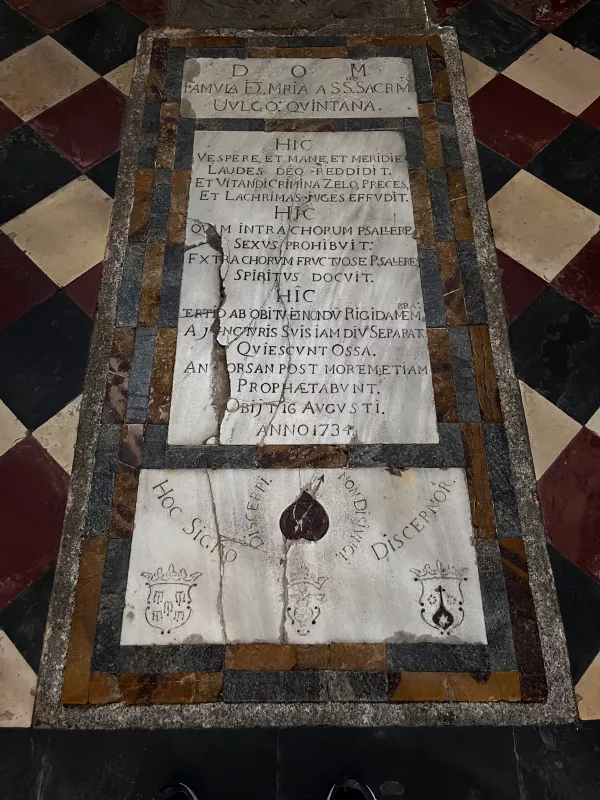 D O M
FAMVLA D̅I̅, MRIA A SS̅. SACRM̅
UULGO: QUINTANA.
HIC
VESPERE, ET MANE, ET MERIDIE
LAUDES DEO REDDIDIT.
ET VITANDI CRIMINA ZELO, PRECES,
ET LACHRIMAS JUGES EFFUDIT.
HIC
QVIM INTRA CHORUM PSALLERE
SEXUS PROHIBVIT:
EXTRA CHORUM FRVCTVOSE PSALLERE
SPIRITVS DOCVIT.
HIC
TERTIO AB OBITU E NONDV RIGIDA MEM̅BRA:
A JVNCTVRIS SVIS IAM DIV SEPARAT.
QVIESCVNT OSSA.
AN FORSAN POST MORTEM, ETIAM
PROPHÆTABVNT.
OBIJT 16 AVGVSTI.
ANNO 1734.
HOC SIGNO DISCERPI. NON DISIVNGI DISCERNOR.